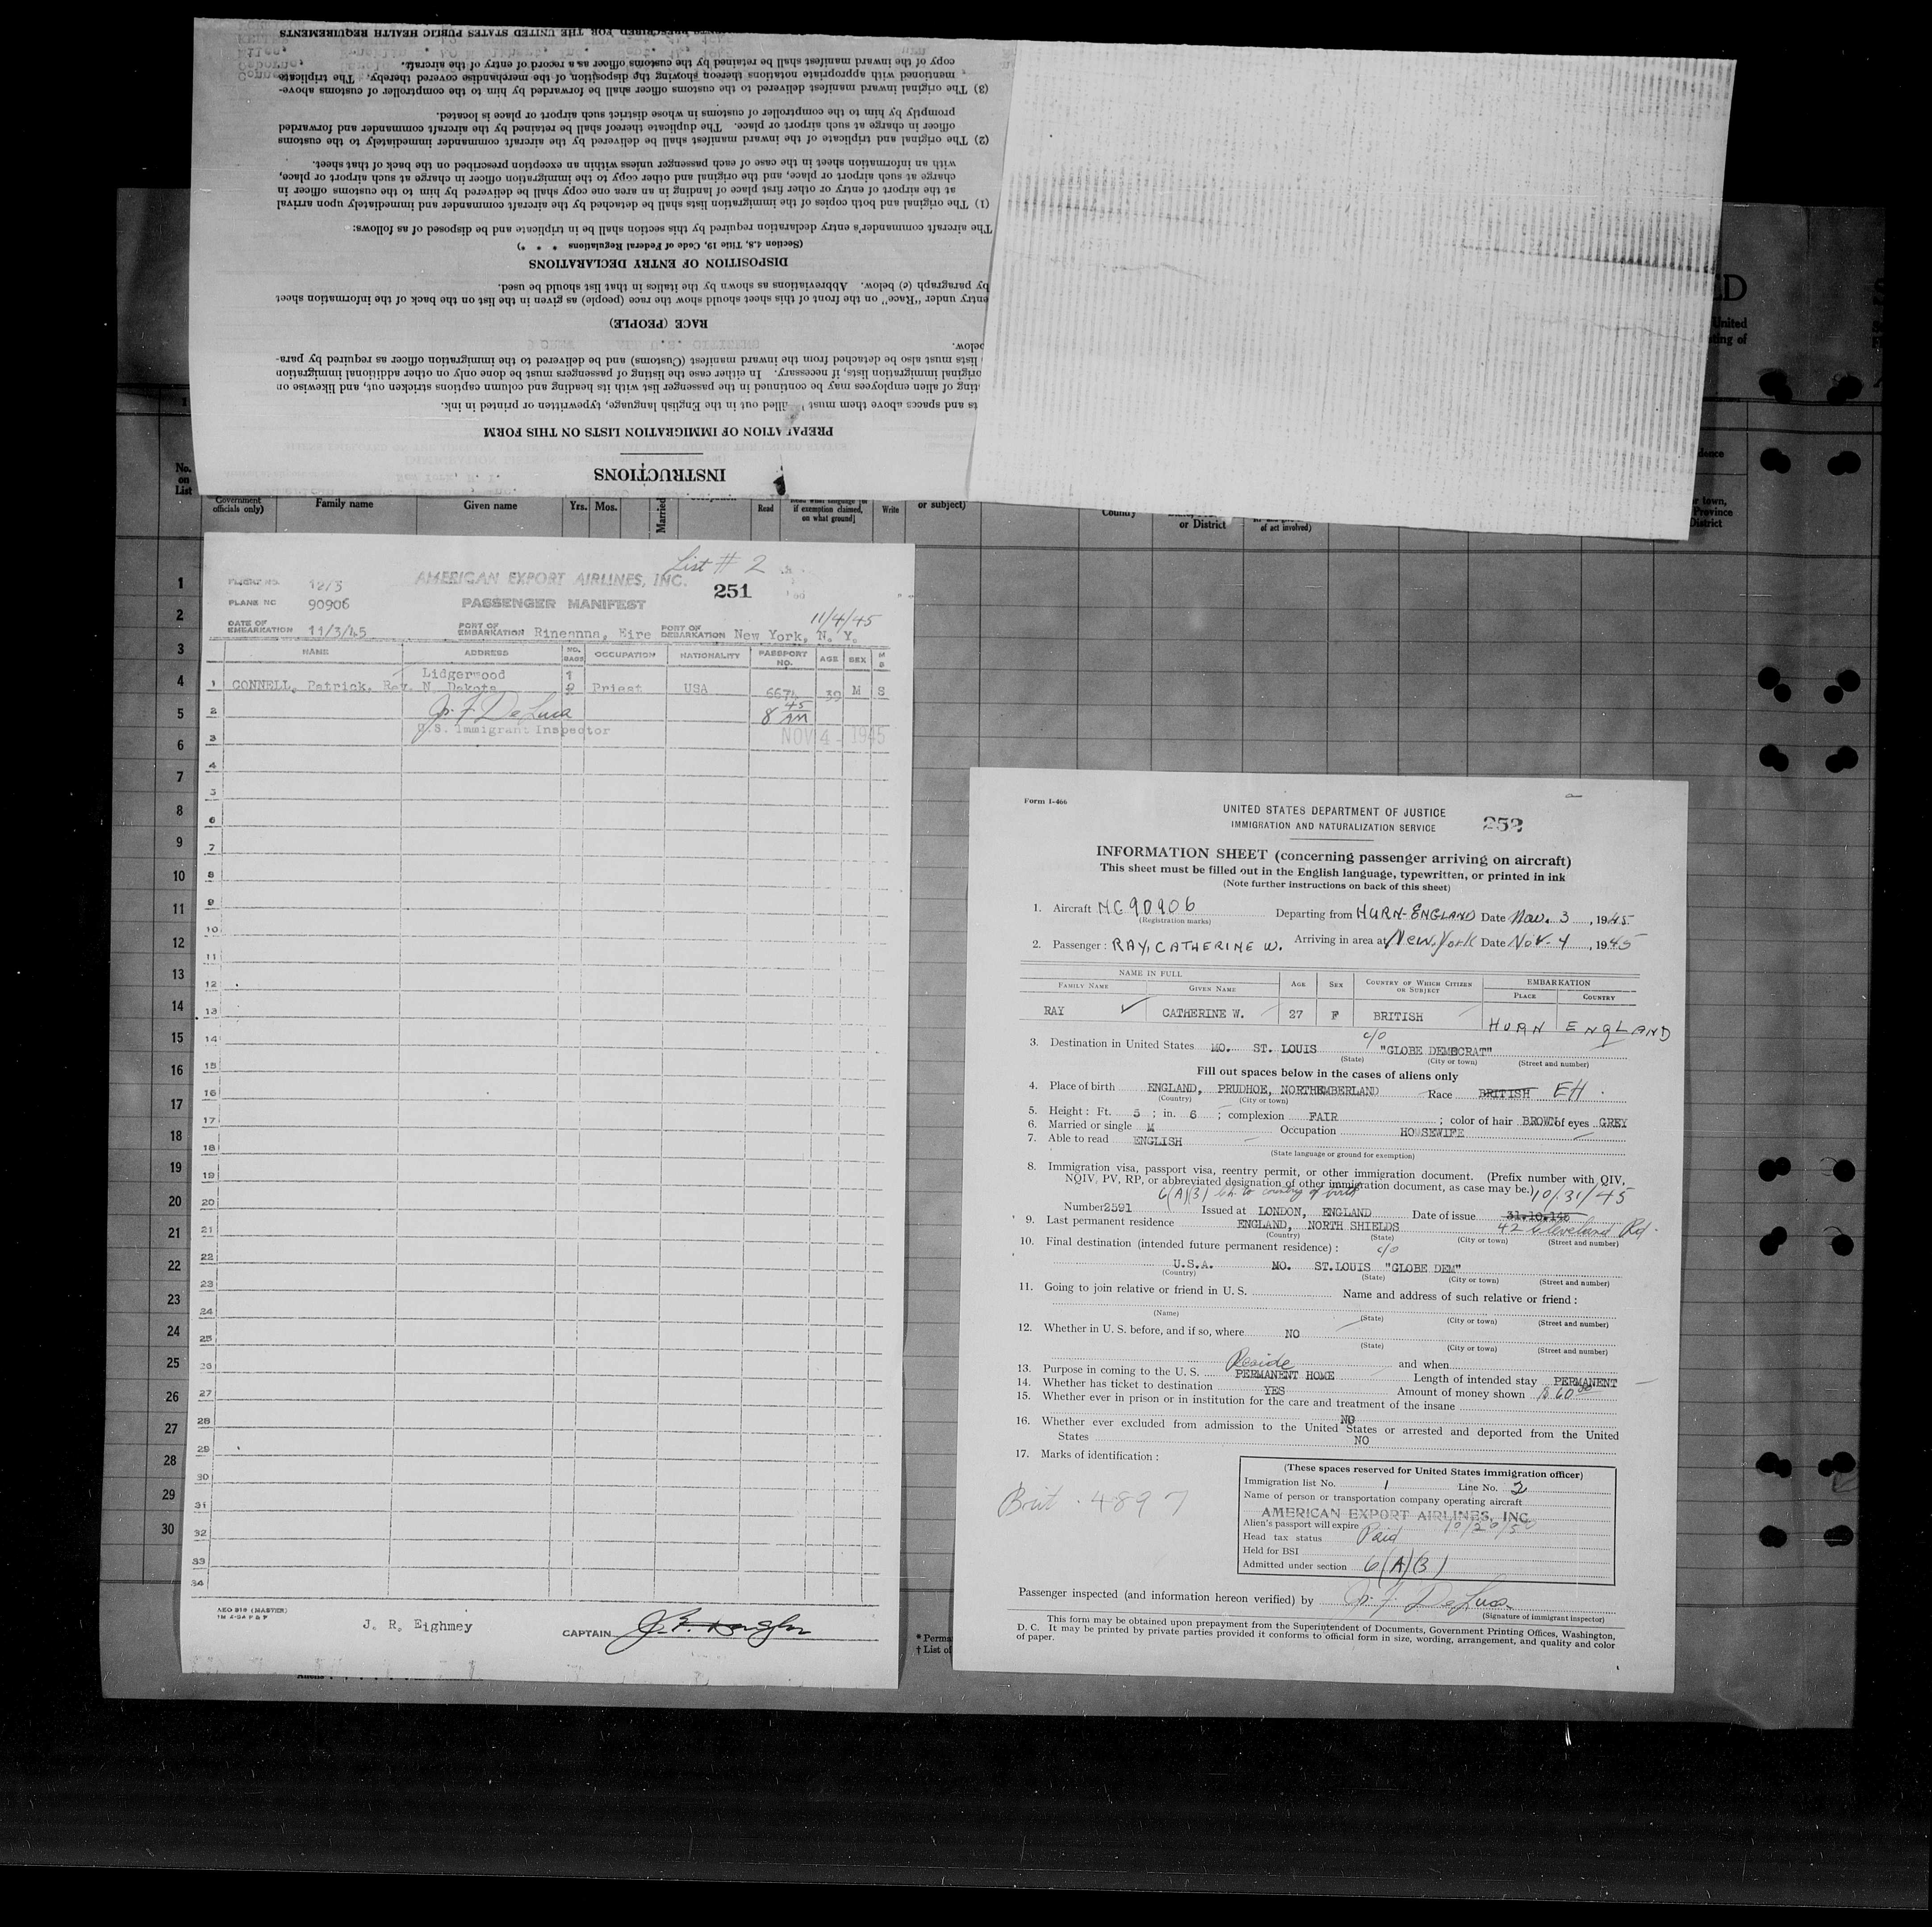 PRESCRIBED FOR THE UNITED STATES PUBLIC HEALTH REQUIREMENTS
copy of the inward manifest shall be retained by the customs officer as a record of entry of the aircraft.
mentioned with appropriate notations thereon showing the disposition of the merchandise covered thereby. The triplicate
(3) The original inward manifest delivered to the customs officer shall be forwarded by him to the comptroller of customs above-
promptly by him to the comptroller of customs in whose district such airport or place is located.
officer in charge at such airport or place. The duplicate thereof shall be retained by the aircraft commander and forwarded
(2) The original and triplicate of the inward manifest shall be delivered by the aircraft commander immediately to the customs
with an information sheet in the case of each passenger unless within an exception prescribed on the back of that sheet.
charge at such airport or place, and the original and other copy to the immigration officer in charge at such airport or place,
at the airport of entry or other first place of landing in an area one copy shall be delivered by him to the customs officer in
(1) The original and both copies of the immigration lists shall be detached by the aircraft commander and immediately upon arrival
The aircraft commander's entry declaration required by this section shall be in triplicate and be disposed of as follows:
(Section 4.8, Title 19, Code of Federal Regulations * * *)
DISPOSITION OF ENTRY DECLARATIONS
by paragraph (c) below. Abbreviations as shown by the italics in that list should be used.
entry under "Race" on the front of this sheet should show the race (people) as given in the list on the back of the information sheet
RACE (PEOPLE)
below.
lists must also be detached from the inward manifest (Customs) and be delivered to the immigration officer as required by para-
original immigration lists, if necessary. In either case the listing of passengers must be done only on other additional immigration
ting of alien employees may be continued in the passenger list with its heading and column captions stricken out, and likewise on
ts and spaces above them must filled out in the English language, typewritten or printed in ink.
PREPARATION OF IMMIGRATION LISTS ON THIS FORM
INSTRUCTIONS
ED
United
ting of
No. on List
Government officials only)
Family name
Given name
Yrs. Mos.
Married
Read
if exemption claimed, on what ground]
Write
or subject)
Country
or District
of act involved)
r town, Province District
List # 2
FLIGHT NO. 12/3
AMERICAN EXPORT AIRLINES, INC.
251
PLANE NO 90906
PASSENGER MANIFEST
11/4/45
DATE OF EMBARKATION 11/3/45
PORT OF EMBARKATION Rineanna, Eire
PORT OF DEBARKATION New York, N. Y.
NAME ADDRESS NO. BAGS OCCUPATION NATIONALITY PASSPORT NO. AGE SEX M S
Lidgerwood 1
1 CONNELL, Patrick, Rev. N. Dakota 2 Priest USA 6674 39 M S
2 J. F. DeLuca 8 45 AM
3 U.S. Immigrant Inspector NOV 4 - 1945
4
5
6
7
8
9
10
11
12
13
14
15
16
17
18
19
20
21
22
23
24
25
26
27
28
29
30
31
32
33
34
AEO 216 (MASTER)
J. R. Eighmey
CAPTAIN
1
2
3
4
5
6
7
8
9
10
11
12
13
14
15
16
17
18
19
20
21
22
23
24
25
26
27
28
29
30
* Perma
† List of
Form I-466
UNITED STATES DEPARTMENT OF JUSTICE
IMMIGRATION AND NATURALIZATION SERVICE
252
INFORMATION SHEET (concerning passenger arriving on aircraft)
This sheet must be filled out in the English language, typewritten, or printed in ink
(Note further instructions on back of this sheet)
1. Aircraft NC90906 Departing from HURN-ENGLAND Date Nov. 3, 1945
(Registration marks)
2. Passenger: RAY, CATHERINE W. Arriving in area at New York Date Nov. 4, 1945
NAME IN FULL AGE SEX COUNTRY OF WHICH CITIZEN OR SUBJECT EMBARKATION
FAMILY NAME GIVEN NAME PLACE COUNTRY
RAY CATHERINE W. 27 F BRITISH HURN ENGLAND
c/o
3. Destination in United States MO. ST. LOUIS "GLOBE DEMOCRAT"
(State) (City or town) (Street and number)
Fill out spaces below in the cases of aliens only
4. Place of birth ENGLAND, PRUDHOE, NORTHEMBERLAND Race BRITISH EH
(Country) (City or town)
5. Height: Ft. 5; in. 6; complexion FAIR; color of hair BROWN of eyes GREY
6. Married or single M Occupation HOUSEWIFE
7. Able to read ENGLISH
(State language or ground for exemption)
8. Immigration visa, passport visa, reentry permit, or other immigration document. (Prefix number with QIV,
NQIV, PV, RP, or abbreviated designation of other immigration document, as case may be.) 10/31/45
6(A)(3) country of birth
Number 2591 Issued at LONDON, ENGLAND Date of issue 31.10.145
9. Last permanent residence ENGLAND, NORTH SHIELDS 42 Cleveland Rd.
(Country) (State) (City or town) (Street and number)
10. Final destination (intended future permanent residence): c/o
U.S.A. MO. ST.LOUIS "GLOBE DEM"
(Country) (State) (City or town) (Street and number)
11. Going to join relative or friend in U. S. Name and address of such relative or friend:
(Name) (State) (City or town) (Street and number)
12. Whether in U. S. before, and if so, where NO
(State) (City or town) (Street and number)
Reside and when
13. Purpose in coming to the U. S. PERMANENT HOME Length of intended stay PERMANENT
14. Whether has ticket to destination YES Amount of money shown $60.00
15. Whether ever in prison or in institution for the care and treatment of the insane
NO
16. Whether ever excluded from admission to the United States or arrested and deported from the United
States NO
17. Marks of identification:
Brit. 4897
(These spaces reserved for United States immigration officer)
Immigration list No. 1 Line No. 2
Name of person or transportation company operating aircraft
AMERICAN EXPORT AIRLINES, INC.
Alien's passport will expire 10/20/50
Head tax status Paid
Held for BSI
Admitted under section 6(A)(3)
Passenger inspected (and information hereon verified) by J. F. DeLuca
(Signature of immigrant inspector)
This form may be obtained upon prepayment from the Superintendent of Documents, Government Printing Offices, Washington,
D. C. It may be printed by private parties provided it conforms to official form in size, wording, arrangement, and quality and color
of paper.